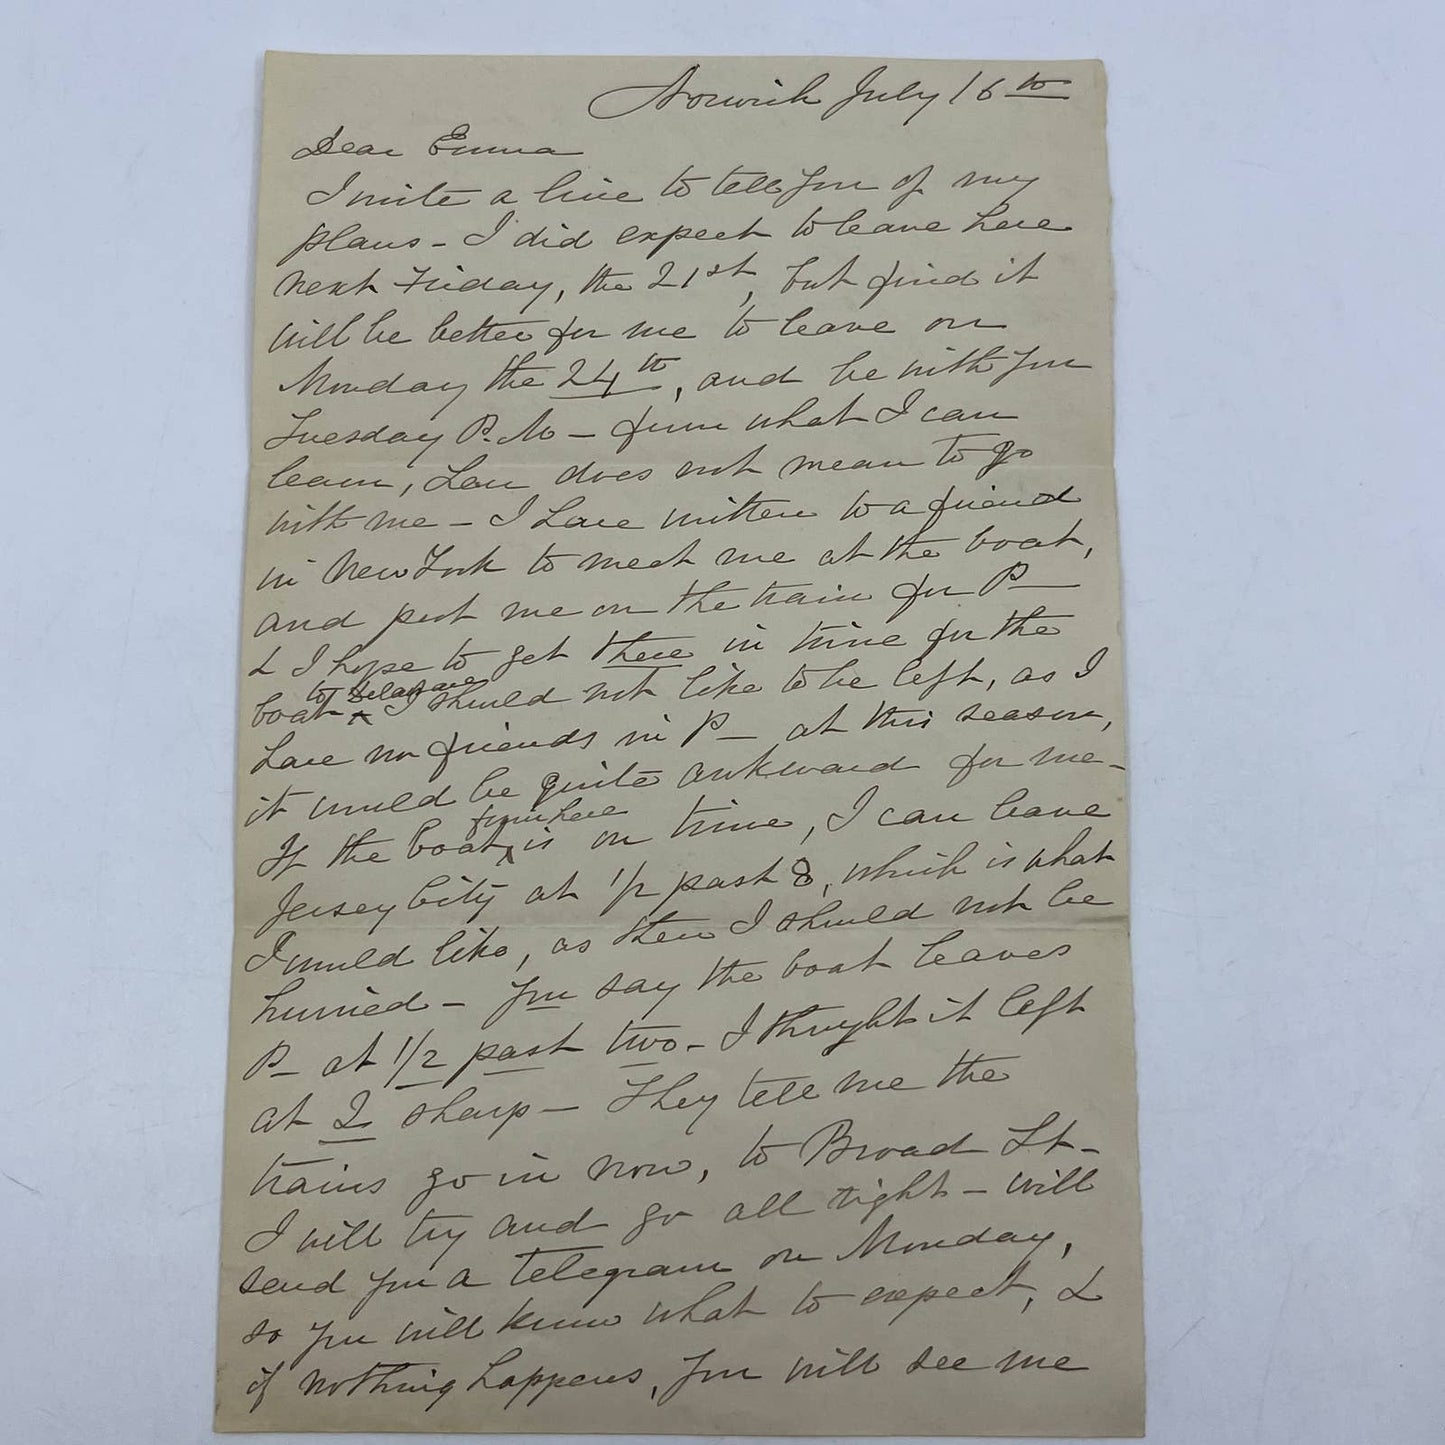 Norwich July 16th
Dear Emma
I write a line to tell you of my
plans - I did expect to leave here
next Friday, the 21st, but find it
will be better for me to leave on
Monday the 24th, and be with you
Tuesday P.M - from what I can
learn, Lou does not mean to go
with me - I have written to a friend
in New York to meet me at the boat,
and put me on the train for P-
& I hope to get there in time for the
boat to Delaware I should not like to be left, as I
have no friends in P- at this season,
it would be quite awkward for me-
If the boat from here is on time, I can leave
Jersey City at 1/2 past 8, which is what
I would like, as then I should not be
hurried - You say the boat leaves
P- at 1/2 past two - I thought it left
at 2 sharp - They tell me the
trains go in now, to Broad St-
I will try and go all right - will
send you a telegram on Monday,
so you will know what to expect, &
if nothing happens, you will see me